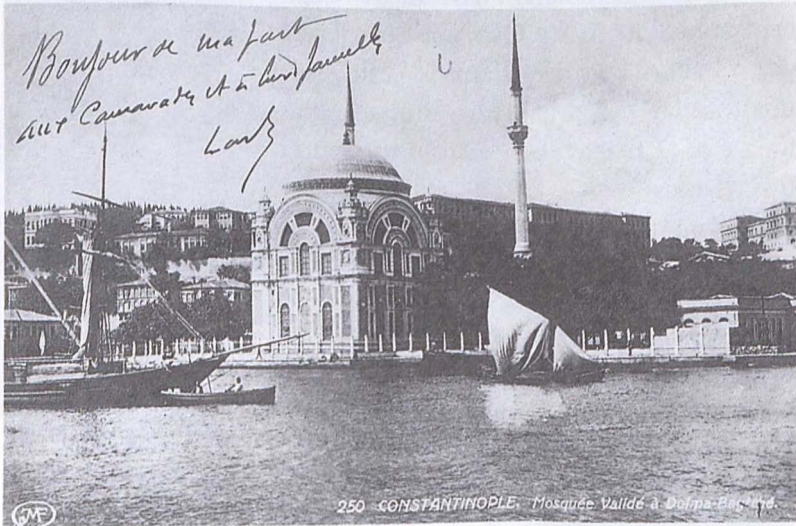 Bonjour de ma part
aux Camarades et à leurs famille
Louis
250 CONSTANTINOPLE. Mosquée Validé à Dolma-Bagtché.
MF